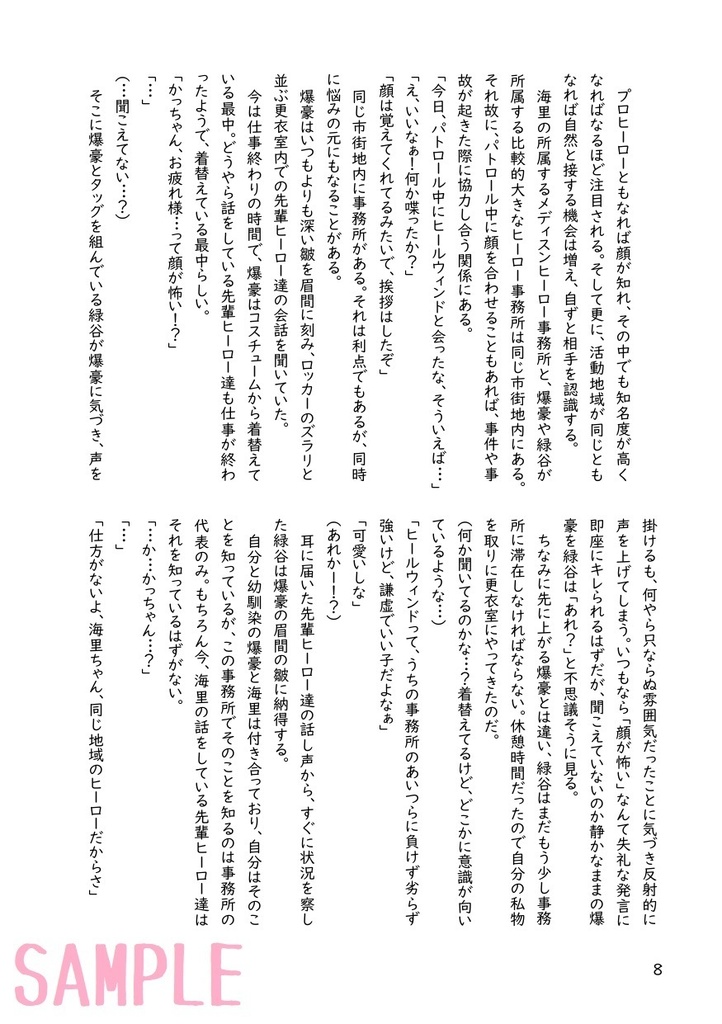 プロヒーローともなれば顔が知れ、その中でも知名度が高く
なればなるほど注目される。そして更に、活動地域が同じとも
なれば自然と接する機会は増え、自ずと相手を認識する。
　海里の所属するメディスンヒーロー事務所と、爆豪や緑谷が
所属する比較的大きなヒーロー事務所は同じ市街地内にある。
それ故に、パトロール中に顔を合わせることもあれば、事件や事
故が起きた際に協力し合う関係にある。
「今日、パトロール中にヒールウィンドと会ったな、そういえば…」
「え、いいなぁ！何か喋ったか？」
「顔は覚えてくれてるみたいで、挨拶はしたぞ」
　同じ市街地内に事務所がある。それは利点でもあるが、同時
に悩みの元にもなることがある。
　爆豪はいつもよりも深い皺を眉間に刻み、ロッカーのズラリと
並ぶ更衣室内での先輩ヒーロー達の会話を聞いていた。
　今は仕事終わりの時間で、爆豪はコスチュームから着替えて
いる最中。どうやら話をしている先輩ヒーロー達も仕事が終わ
ったようで、着替えている最中らしい。
「かっちゃん、お疲れ様…って顔が怖い！？」
「…」
（…聞こえてない…？）
　そこに爆豪とタッグを組んでいる緑谷が爆豪に気づき、声を
掛けるも、何やら只ならぬ雰囲気だったことに気づき反射的に
声を上げてしまう。いつもなら「顔が怖い」なんて失礼な発言に
即座にキレられるはずだが、聞こえていないのか静かなままの爆
豪を緑谷は「あれ？」と不思議そうに見る。
　ちなみに先に上がる爆豪とは違い、緑谷はまだもう少し事務
所に滞在しなければならない。休憩時間だったので自分の私物
を取りに更衣室にやってきたのだ。
（何か聞いてるのかな…？着替えてるけど、どこかに意識が向い
ているような…）
「ヒールウィンドって、うちの事務所のあいつらに負けず劣らず
強いけど、謙虚でいい子だよなぁ」
「可愛いしな」
（あれかー！？）
　耳に届いた先輩ヒーロー達の話し声から、すぐに状況を察し
た緑谷は爆豪の眉間の皺に納得する。
　自分と幼馴染の爆豪と海里は付き合っており、自分はそのこ
とを知っているが、この事務所でそのことを知るのは事務所の
代表のみ。もちろん今、海里の話をしている先輩ヒーロー達は
それを知っているはずがない。
「…か…かっちゃん…？」
「…」
「仕方がないよ、海里ちゃん、同じ地域のヒーローだからさ」
SAMPLE
8